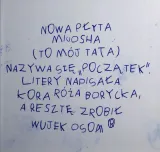 NOWA PŁYTA
MIŁOSHA
(TO MÓJ TATA)
NAZYWA SIĘ „POCZĄTEK”.
LITERY NAPISAŁA
KORA RÓŻA BORYCKA,
A RESZTĘ ZROBIŁ
WUJEK OSOM